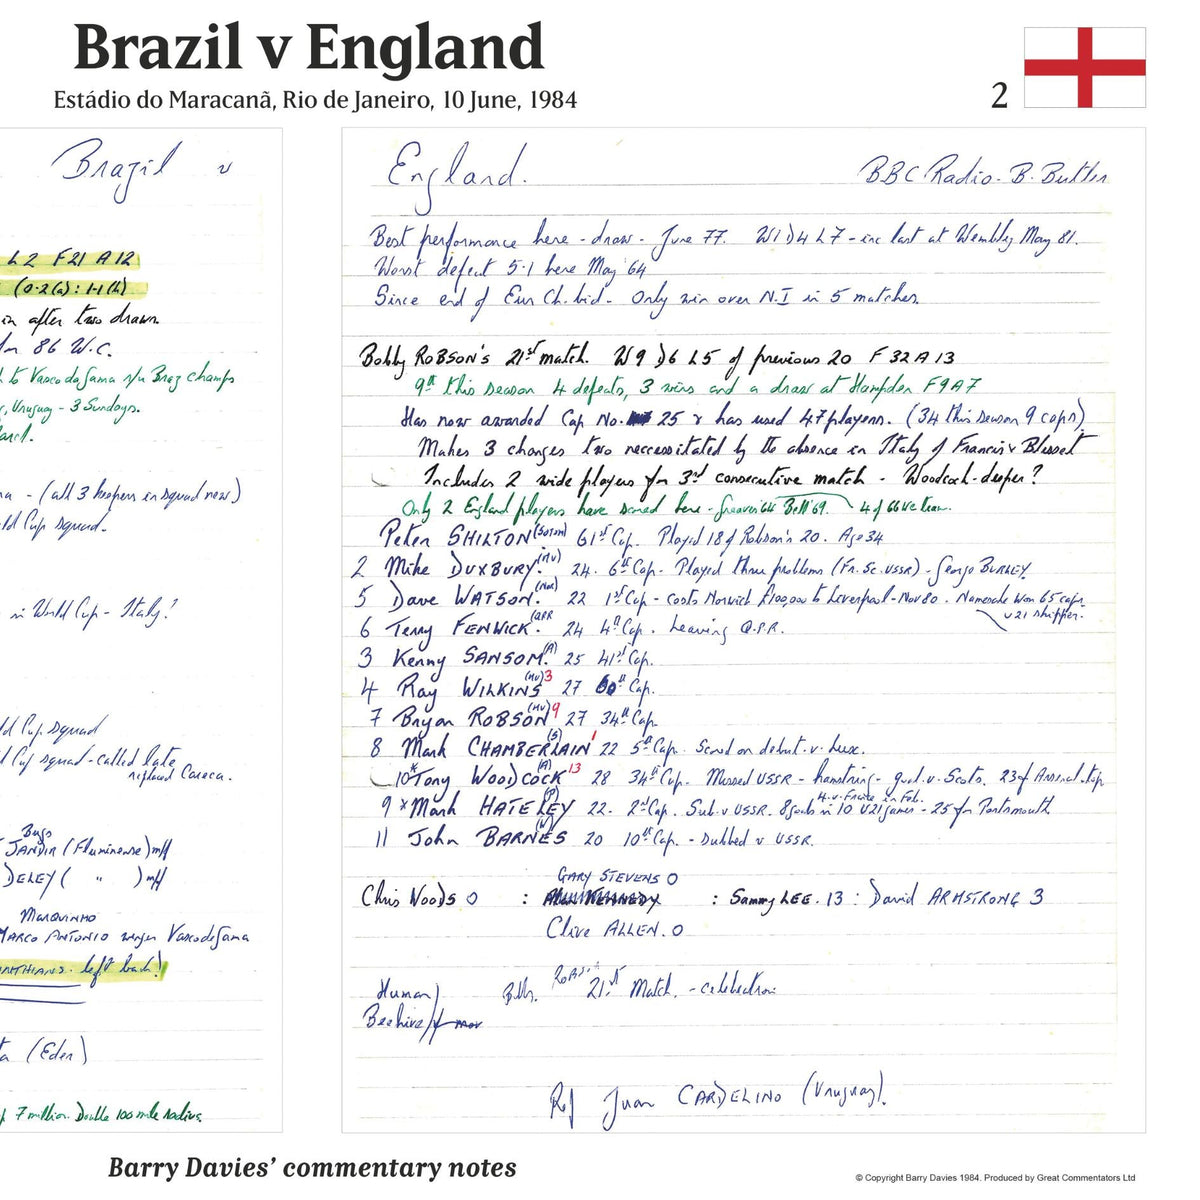 Brazil v England
Estádio do Maracanã, Rio de Janeiro, 10 June, 1984
2
Brazil v
L2 F21 A12
(0-2(a): 1-1(h)
in after two drawn.
for 86 W.C.
to Vasco da Gama r/u Braz champs
, Uruguay - 3 Sundays.
- (all 3 keepers in squad new)
ld Cup squad.
in World Cup - Italy?
ld Cup squad
d Cup squad - called late
replaced Careca.
Bugs
JANDIR (Fluminense) m/f
DELEY ( " ) m/f
MARQUINHO
MARCO ANTONIO winger Vasco da Gama
INTHIANS. left back!
(Eder)
7 million. Double 100 mile radius.
England.
BBC Radio - B. Butler
Best performance here - draw - June 77. W1 D4 L7 - inc last at Wembley May 81.
Worst defeat 5-1 here May '64
Since end of Eur Ch. bid - Only win over N.I in 5 matches.
Bobby ROBSON'S 21st match. W9 D6 L5 of previous 20 F32 A13
9th this season 4 defeats, 3 wins and a draw at Hampden F9 A7
Has now awarded Cap No. 25 & has used 47 players. (34 this season 9 caps)
Makes 3 changes two necessitated by the absence in Italy of Francis & Blissett
Includes 2 wide players for 3rd consecutive match - Woodcock - deeper?
Only 2 England players have scored here - Greaves 64 Bell '69. 4 of 66 WC team.
Peter SHILTON (Soton) 61st Cap. Played 18 of Robson's 20. Age 34
2 Mike DUXBURY. (MU) 24. 6th Cap - Played three problems (Fr. Sc. USSR) - George BURLEY.
5 Dave WATSON. (Nor) 22 1st Cap - costs Norwich £100,000 to Liverpool - Nov 80. Namesake won 65 caps.
U21 skipper.
6 Terry FENWICK. (QPR 24 4th Cap. Leaving Q.P.R.
3 Kenny SANSOM. (A) 25 41st Cap.
4 Ray WILKINS (MU) 3 27 60th Cap.
7 Bryan ROBSON (MU) 9 27 34th Cap.
8 Mark CHAMBERLAIN (S) 1 22 5th Cap. Scored on debut v. Lux.
10* Tony WOODCOCK (A) 13 28 34th Cap. Missed USSR - hamstring - goal v. Scots. 23 for Arsenal - top
4 v. France in Feb.
9 * Mark HATELEY (P) 22. 2nd Cap. Sub v USSR. 8 goals in 10 U21 games - 25 for Portsmouth
11 John BARNES (W) 20 10th Cap. - Subbed v USSR.
GARY STEVENS 0
Chris Woods 0 : Alan KENNEDY : Sammy LEE. 13 : David ARMSTRONG 3
Clive ALLEN. 0
Human
Beehive
21st Match. - celebration
Ref Juan CARDELINO (Uruguay).
Barry Davies' commentary notes
© Copyright Barry Davies 1984. Produced by Great Commentators Ltd